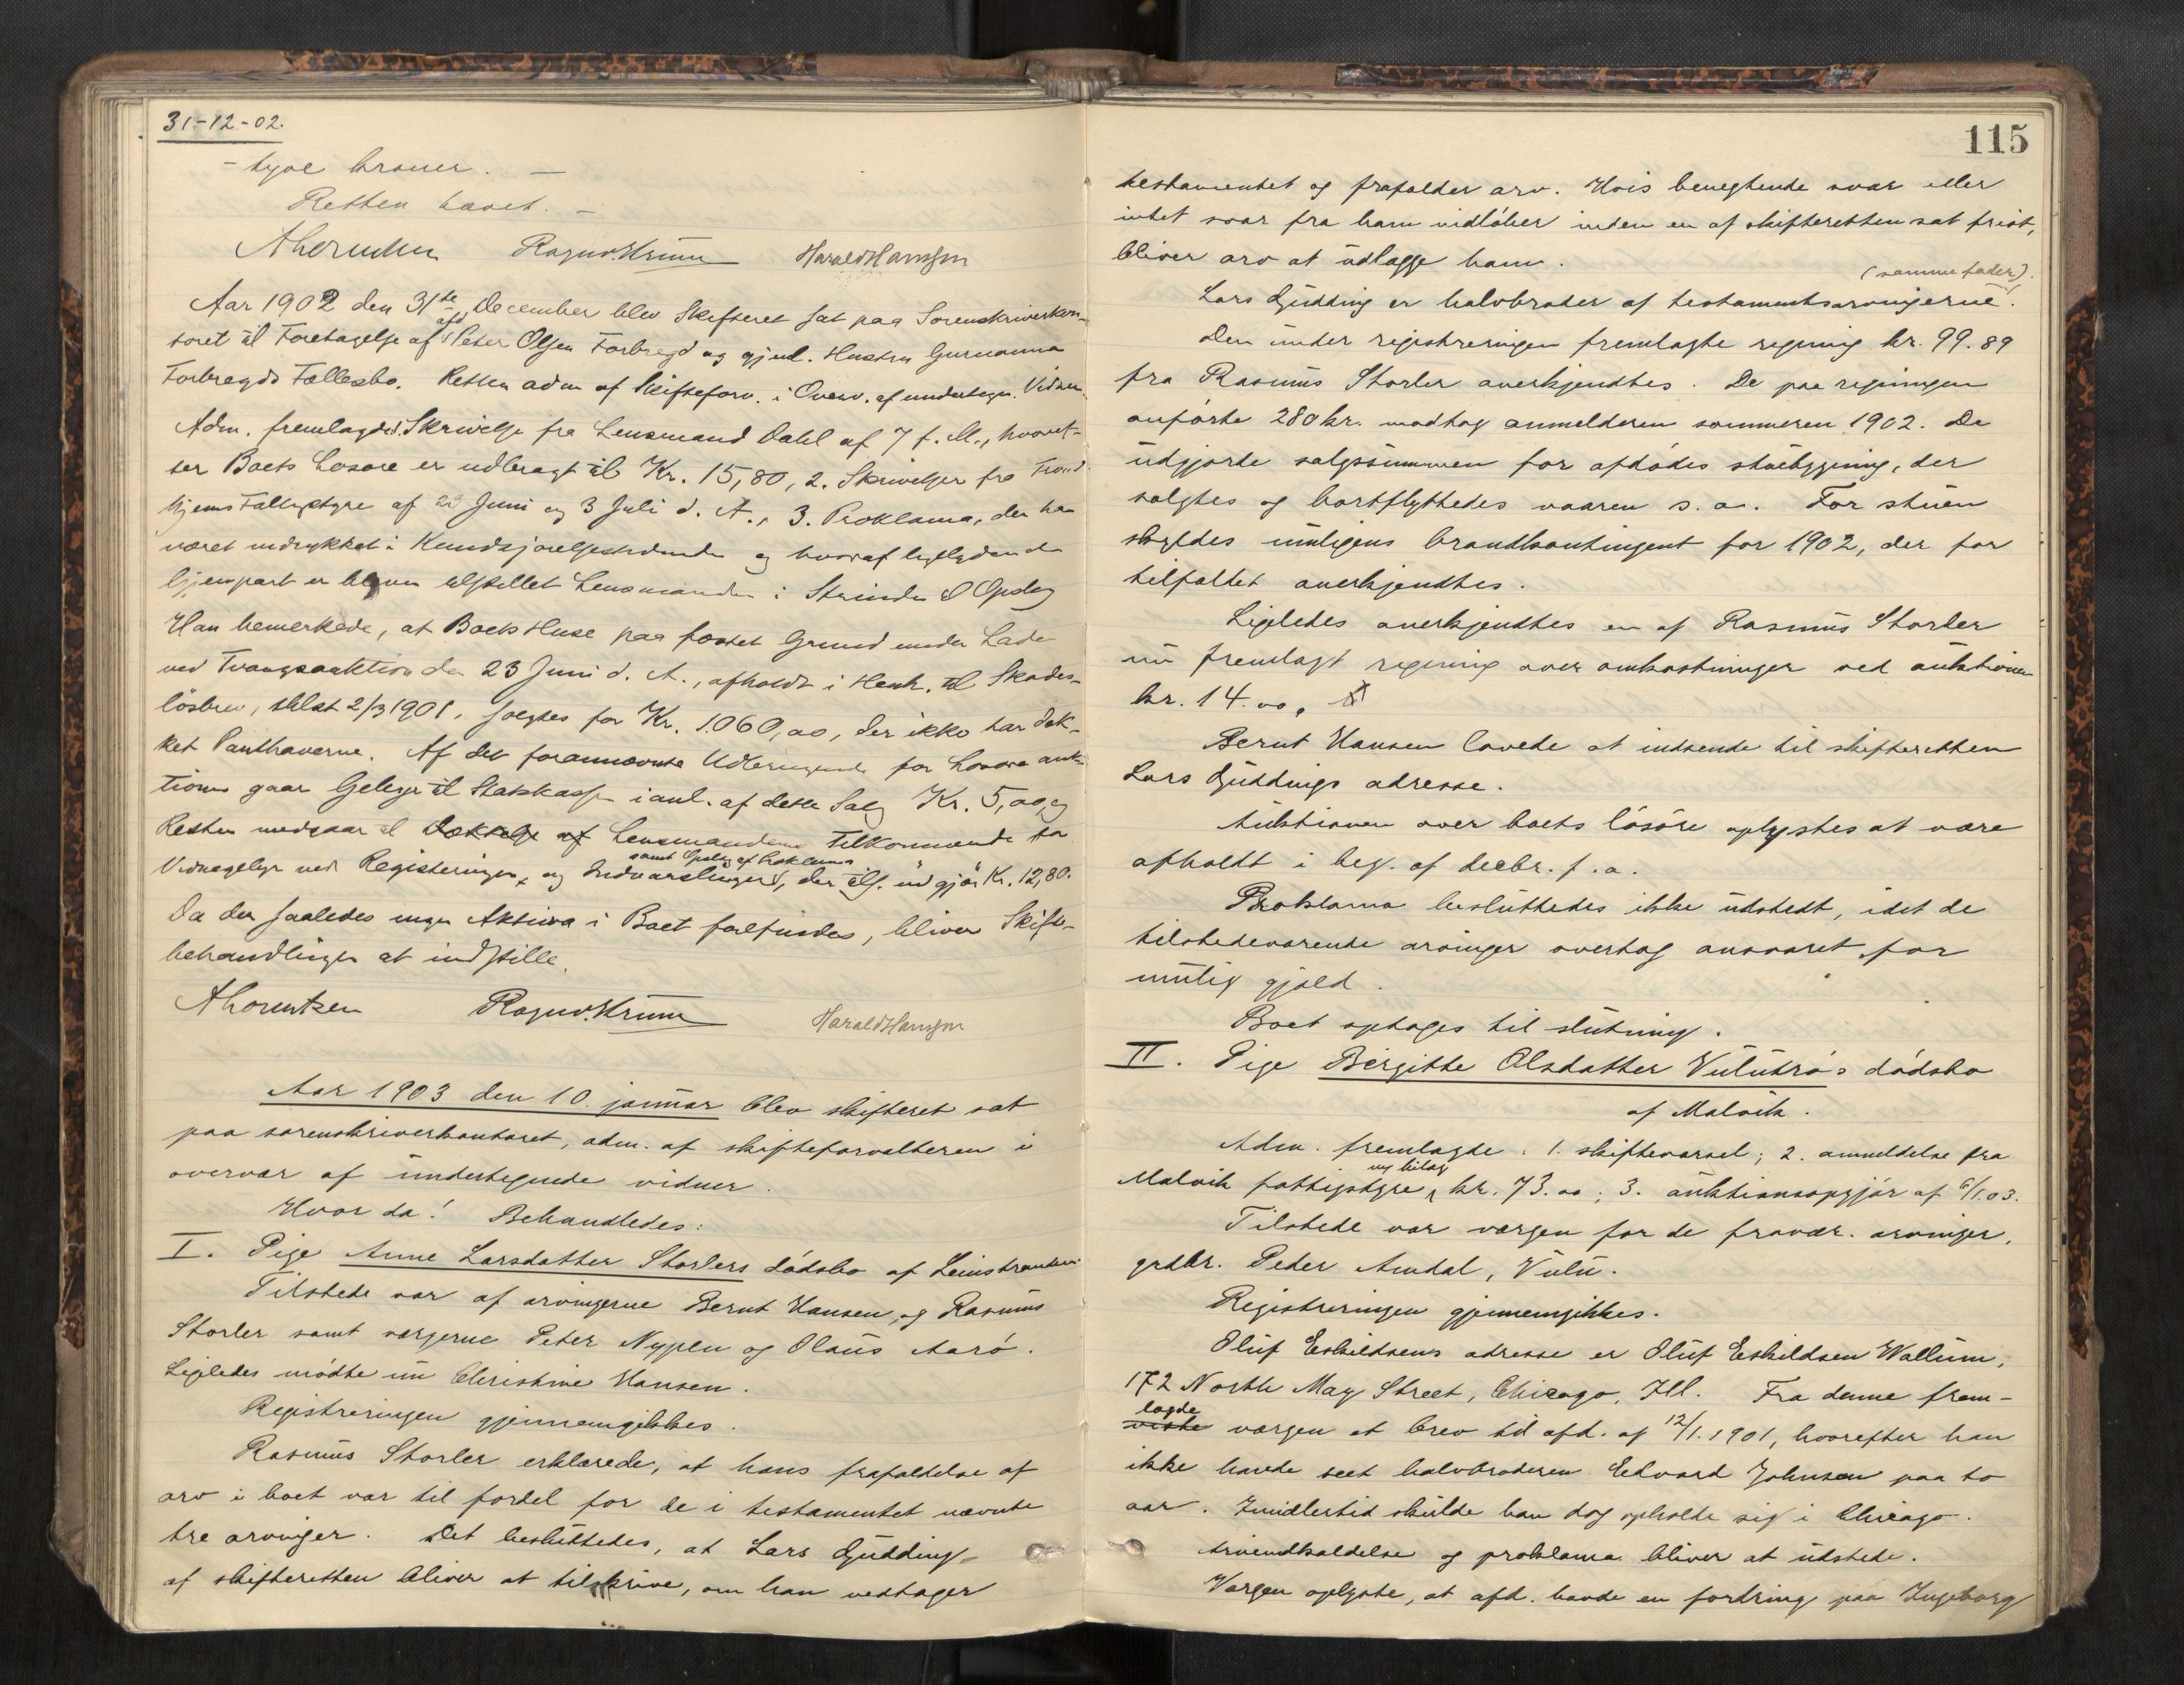 31-12-02.
- tyve kroner. -
Retten hævet. -
Ragnv. Krum Harald Hansen
Aar 1902 den 31te December blev Skifteret sat paa Sorenskriverkon-
toret til Foretagelse af afd Peter Olsen Forbregd og gjenl. Hustru Gurianna
Forbregds Fællesbo. Retten adm af Skifteforv. i Overv. af undertegn. Vidner.
Adm. fremlagde 1. Skrivelse fra Lensmand Dahl af 7 f. M., hvoref-
ter Boets Løsøre er udbragt til Kr. 15,80, 2. Skrivelser fra Trond
hjems af 23 Juni og 3 Juli d. A., 3. Proklama, der har
været indrykket i Kundgjørelsestidende og hvoraf ligelydende
gjenpart er bleven tilstillet Lensmanden i Strinden til Opslag
Han bemerkede, at Boets Huse paa fæstet Grund under Lade
ved Tvangsauktion den 23 Juni d. A., afholdt i Henh. til Skades-
løsbrev, thlst 2/3 1901, solgtes for Kr. 1.060,00, der ikke har dæk-
ket Panthaverne. Af det forannævnte for Løsøre auk-
tionen gaar Gebyr til Statskassen i anl. af dette Salg Kr. 5,00, og
Resten medgaar til Dækkelse af Lensmandens tilkommende
samt Opslag af Proklama
ved Registeringen, og Indvarslingen, der tils. udgjør Kr. 12,80.
Da der saaledes ingen Aktiva i Boet forefindes, bliver Skifte-
behandlingen at indstille.
A Lorentzen Ragnv. Krum Harald Hansen
Aar 1903 den 10. januar blev skifteret sat
paa sorenskriverkontoret, adm. af skifteforvalteren i
overvær af undertegnede vidner.
Hvor da! Behandledes:
I. Pige Anne Larsdatter Storlers dødsbo af Leinstranden
Tilstede var af arvingerne Bernt Hansen og Rasmus
Storler samt værgerne Peter Nyplen og Olaus Aarø.
Ligeledes mødte nu Christine Hansen.
Registreringen gjennemgikkes.
Rasmus Storler erklærede, at hans frafaldelse af
arv i boet var til fordel for de i testamentet nævnte
tre arvinger. Det besluttedes, at Lars Gjudding
af skifteretten bliver at tilskrive, om han vedtager
115
testamentet og frafalder arv. Hvis benegtende svar eller
intet svar fra ham indløber inden en af skifteretten sat frist,
bliver arv at udlægge ham.
(samme fader).
Lars Gjudding er halvbroder af testamentsarvingerne.
Den under registreringen fremlagte regning kr. 99.89
fra Rasmus Storler anerkjendtes. De paa regningen
anførte 280 kr. modtog anmelderen sommeren 1902. De
udgjorde salgssummen for afdødes stuebygning, der
solgtes og bortflyttedes vaaren s. a. For stuen
skyldes muligens brandkontingent for 1902, der for
tilfældet anerkjendtes.
Ligeledes anerkjendtes en af Rasmus Storler
nu fremlagt regning over omkostninger ved auktionen
kr. 14.00.
Bernt Hansen lovede at indsende til skifteretten
Lars Gjuddings adresse.
Auktionen over boets løsøre oplystes at være
afholdt i beg. af decbr. f. a.
Proklama besluttedes ikke udstedt, idet de
tilstedeværende arvinger overtog ansvaret for
mulig gjæld.
Boet optages til slutning.
II. Pige Birgitte Olsdatter Vulutrø's dødsbo
af Malvik.
Adm. fremlagde: 1. skiftevarsel; 2. anmeldelse fra
m/ bilag
Malvik fattigstyre, kr. 73.00; 3. auktionsopgjør af 6/1.03.
Tilstede var værgen for de fravær. arvinger,
grdbr. Peder Amdal, Vulu.
Registreringen gjennemgikkes.
Oluf Eskildsens adresse er Oluf Eskildsen Wallum,
172 North May Street, Chicago, Ill. Fra denne frem-
lagde
viste værgen et brev til afd. af 12/1.1901, hvorefter han
ikke havde seet halvbroderen Edvard Johnsen paa to
aar. Imidlertid skulde han dog opholde sig i Chicago.
Arveindkaldelse og proklama bliver at udstede.
Værgen oplyste, at afd. havde en fordring paa Ingeborg